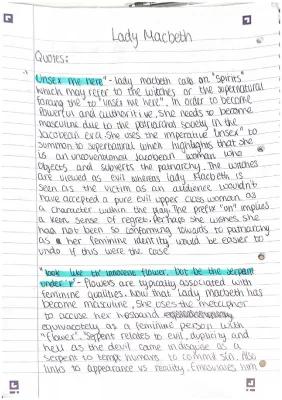 Lady Macbeth
Quotes:
"Unsex me here" - lady macbeth calls on "spirits"
which may refer to the witches or the supernatural
forcing the to "unsex me here". In order to become
powerful and authoritive, she needs to become
masculine due to the patriarchal society in the
Jacobean era. She uses the imperative "unsex" to
summon to supernatural which highlights that she
is an unconventional Jacobean woman who
objects and subverts the patriarchy. The witches
are viewed as evil whereas lady Macbeth is
seen as the victim as an audience wouldn't
have accepted a pure evil upper class woman as
a character within the play. The prefix "un" implies
a keen sense of regret. Perhaps she wishes she
had not been so conforming towards to patriarchy
as her feminine identity would be easier to
undo if this were the case
"look like th' innocent flower, but be the serpent
under't" - Flowers are typically associated with
feminine qualities. Now that Lady Macbeth has
become masculine, she uses the metaphor
to accuse her husband
equivocately as a feminine person with
"flower". Serpent relates to evil, duplicity and
hell as the devil came in disguise as a
serpent to tempt humans to commit sin. Also
links to appearance vs reality. Emasculates him